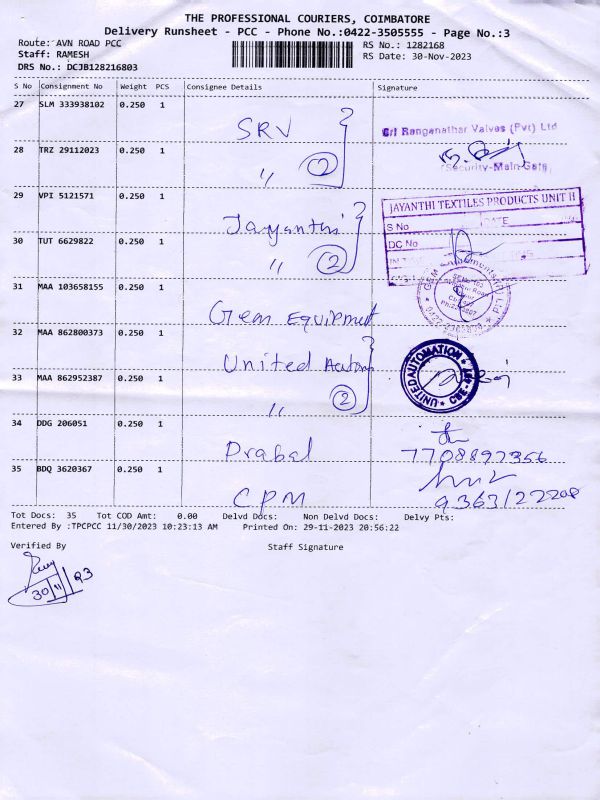 THE PROFESSIONAL COURIERS, COIMBATORE
Delivery Runsheet - PCC - Phone No.:0422-3505555 - Page No.:3
Route: AVN ROAD PCC
RS No.: 1282168
Staff: RAMESH
RS Date: 30-Nov-2023
DRS No.: DCJB128216803
S No Consignment No Weight PCS Consignee Details Signature
27 SLM 333938102 0.250 1 SRV
Sri Ranganathar Valves (Pvt) Ltd
28 TRZ 29112023 0.250 1 〃 2
Security-Main Gate
29 VPI 5121571 0.250 1 Jayanthi
JAYANTHI TEXTILES PRODUCTS UNIT II
S No DATE
DC No
30 TUT 6629822 0.250 1 〃 2
31 MAA 103658155 0.250 1 Gem Equipment
32 MAA 862800373 0.250 1 United Autom
UNITED AUTOMATION
33 MAA 862952387 0.250 1 〃 2
34 DDG 206051 0.250 1 Prabal
7708897356
35 BDQ 3620367 0.250 1 CPM
9363122208
Tot Docs: 35 Tot COD Amt: 0.00 Delvd Docs: Non Delvd Docs: Delvy Pts:
Entered By :TPCPCC 11/30/2023 10:23:13 AM Printed On: 29-11-2023 20:56:22
Verified By Staff Signature
30/11/23